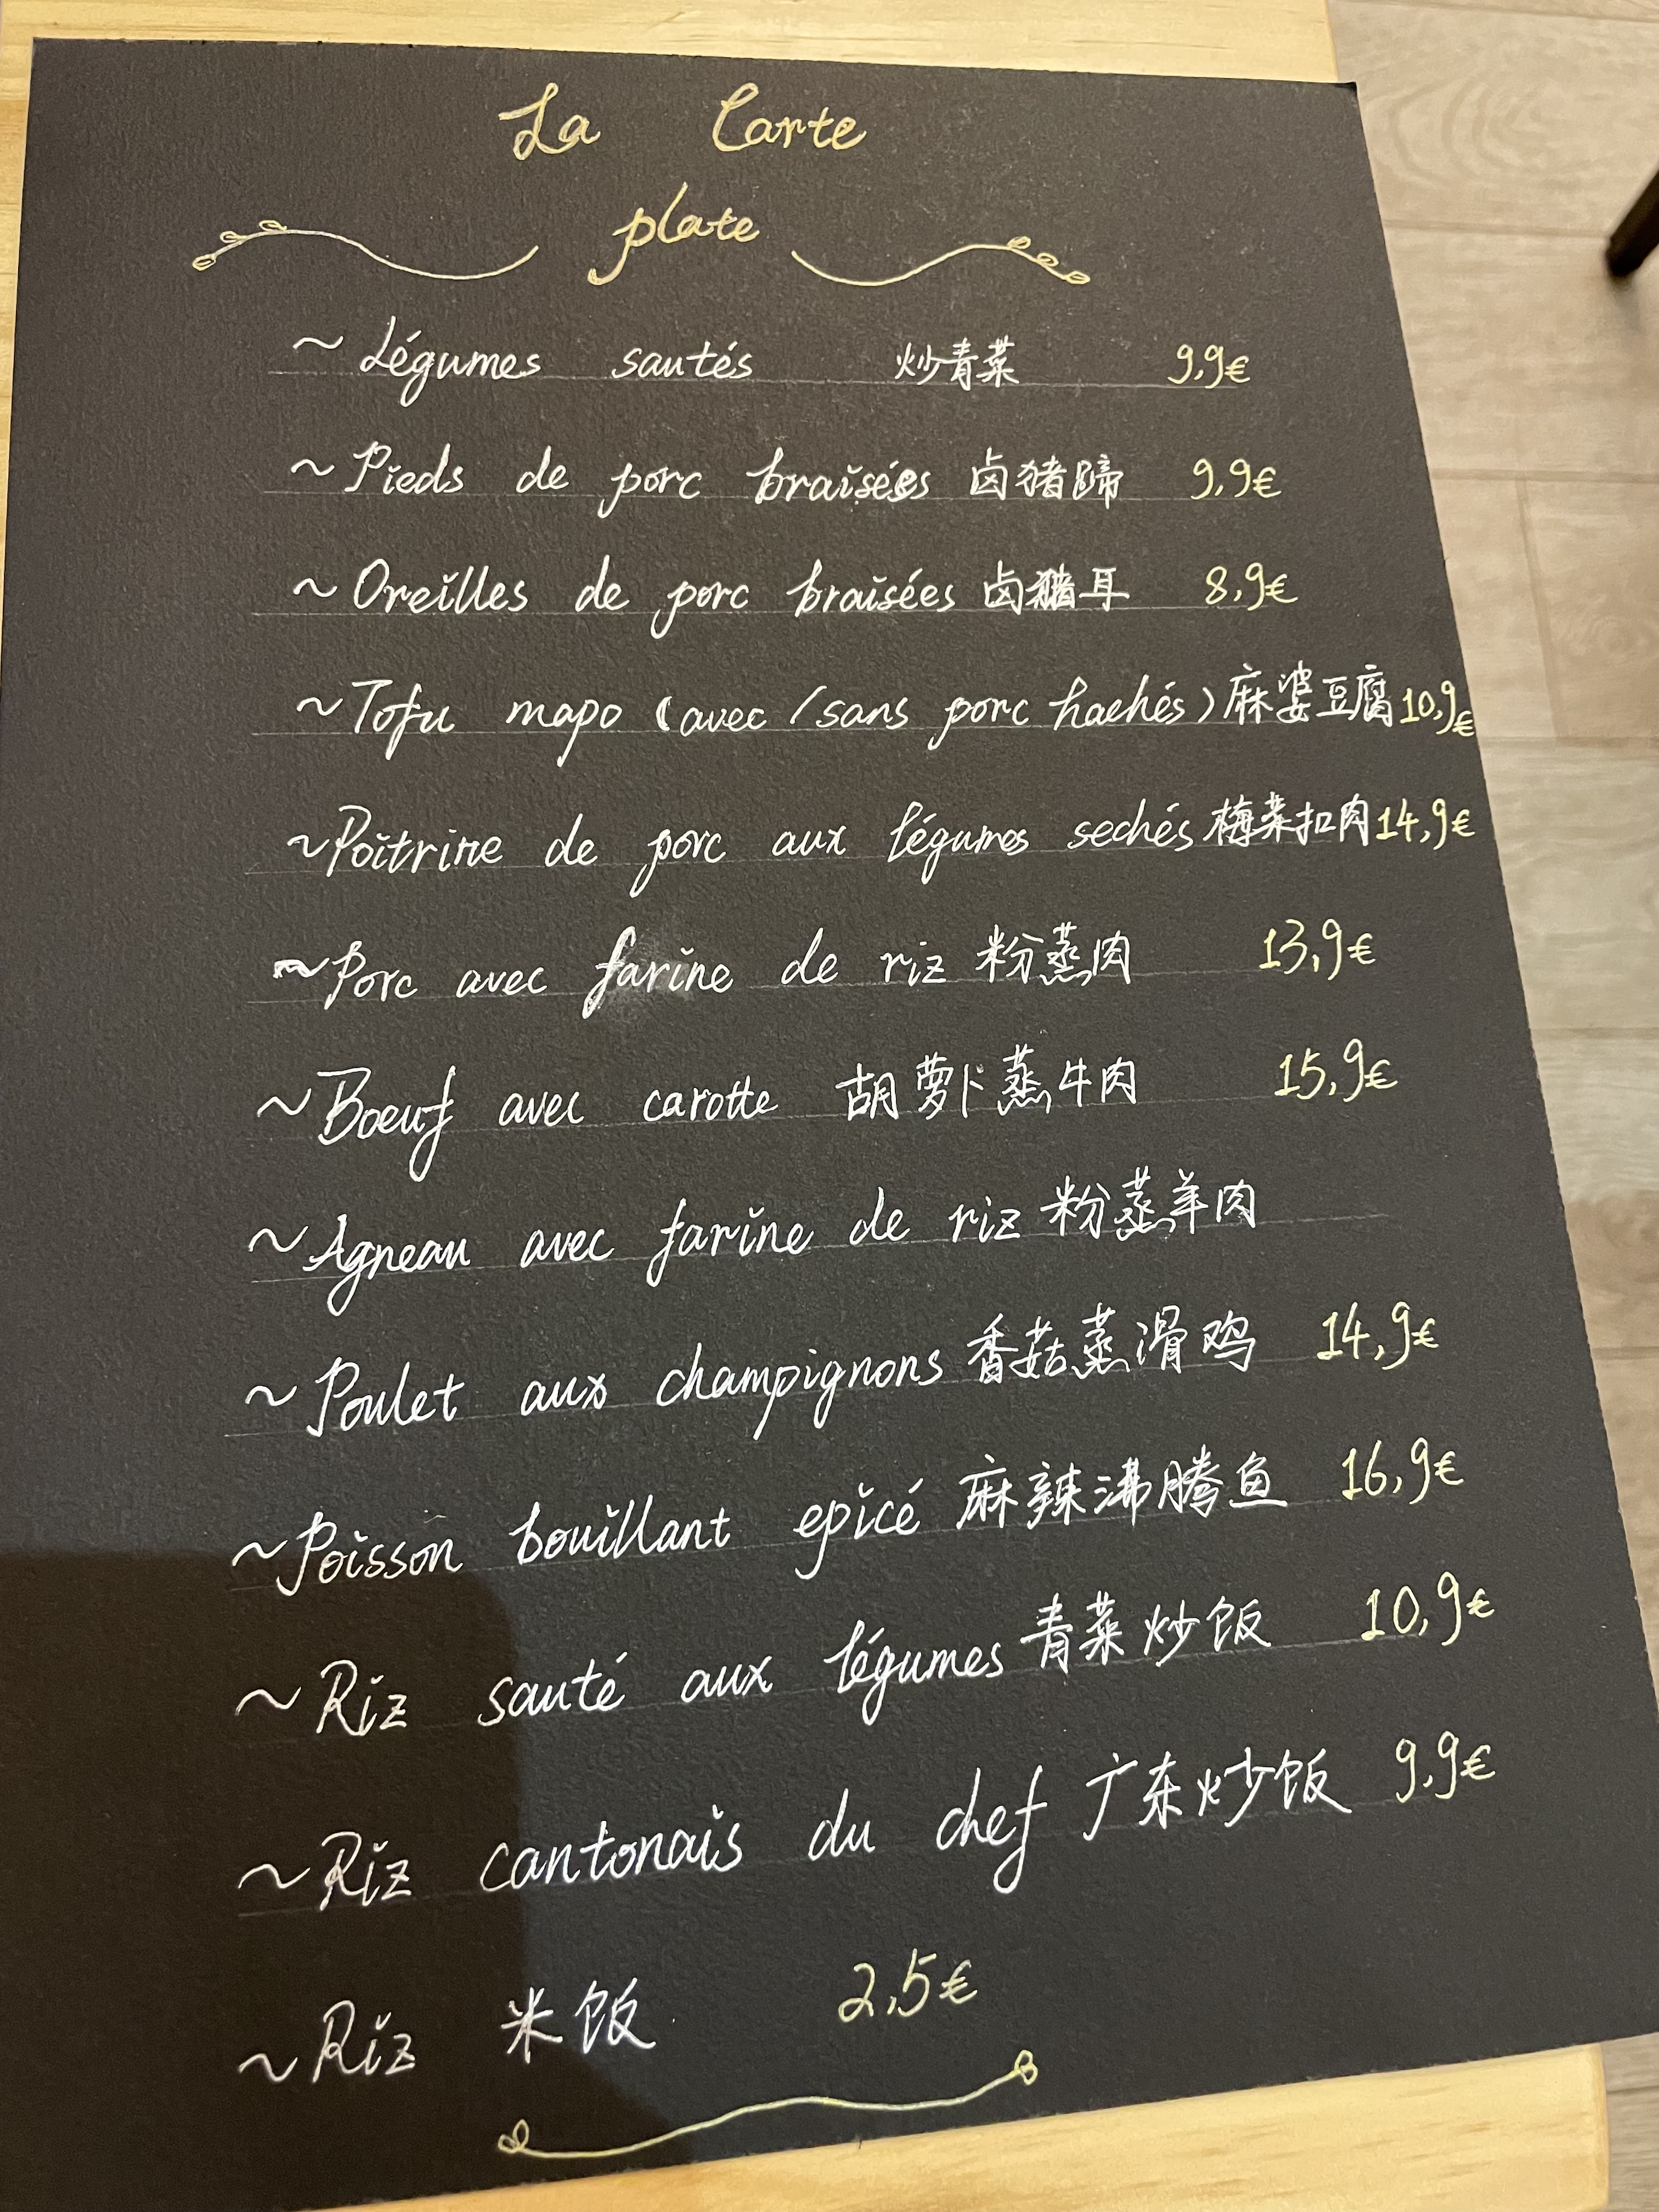 La Carte
plate
~ Légumes sautés 炒青菜 9,9€
~ Pieds de porc braisées 卤猪蹄 9,9€
~ Oreilles de porc braisées 卤猪耳 8,9€
~ Tofu mapo (avec/sans porc hachés) 麻婆豆腐 10,9€
~ Poitrine de porc aux légumes sechés 梅菜扣肉 14,9€
~ Porc avec farine de riz 粉蒸肉 13,9€
~ Boeuf avec carotte 胡萝卜蒸牛肉 15,9€
~ Agneau avec farine de riz 粉蒸羊肉
~ Poulet aux champignons 香菇蒸滑鸡 14,9€
~ Poisson bouillant epicé 麻辣沸腾鱼 16,9€
~ Riz sauté aux légumes 青菜炒饭 10,9€
~ Riz cantonais du chef 广东炒饭 9,9€
~ Riz 米饭 2,5€